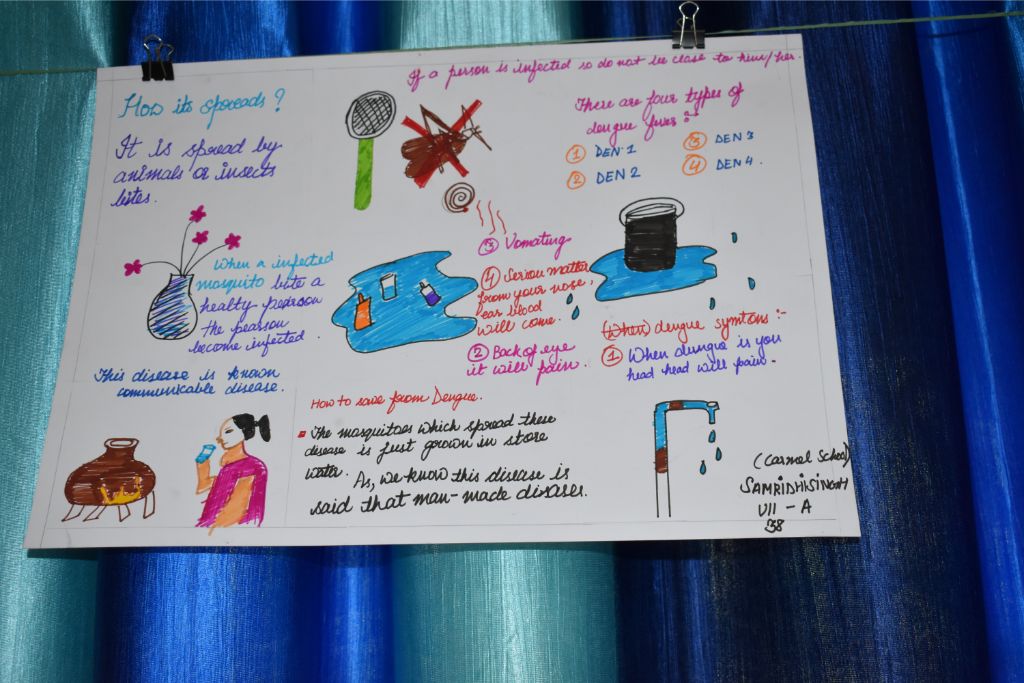 If a person is infected so do not be close to him/her.
How its spreads ?
It is spread by
animals or insects
bites.
There are four types of
dengue fever :-
① DEN 1
② DEN 2
③ DEN 3
④ DEN 4 .
When a infected
mosquito bite a
healty pearson
the pearson
become infected .
This disease is known
communicable disease.
③ Vomating
④ Serion matter
from your nose,
ear blood
will come.
② Back of eye
it will pain .
(When) dengue symtons :-
① When dungue is you
head head will pain -
How to save from Dengue.
The mosquitoes which spread there
disease is just grown in store
water. As, we know this disease is
said that man-made disases.
(Carmel School)
SAMRIDHI SINGH
VII - A
38